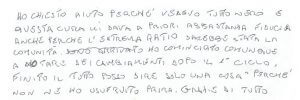 HO CHIESTO AIUTO PERCHE' VEDEVO TUTTO NERO E
QUESTA CURA MI DAVA A PRIORI ABBASTANZA FIDUCIA
ANCHE PERCHE' L'ESTREMA RATIO SAREBBE STATA LA
COMUNITA'. SONO ARRIVATO HO COMINCIATO COMUNQUE
A NOTARE DEI CAMBIAMENTI DOPO IL 1° CICLO,
FINITO IL TUTTO POSSO DIRE SOLO UNA COSA "PERCHE'
NON NE HO USUFRUITO PRIMA. GRAZIE DI TUTTO